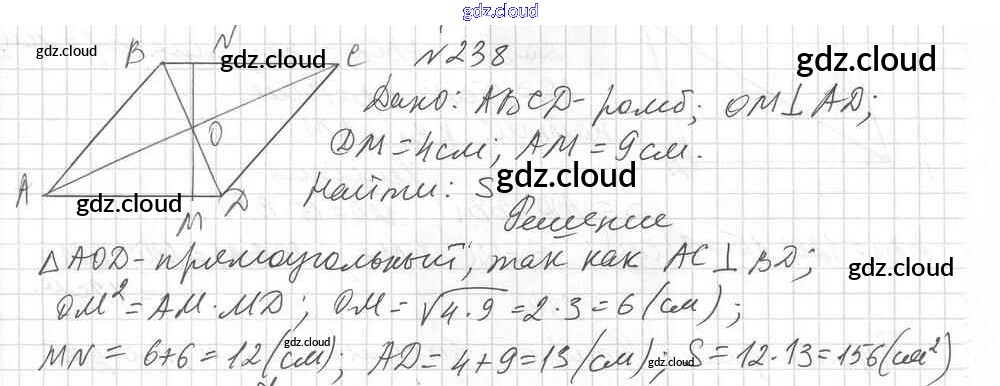 gdz.cloud
gdz.cloud
B N C
gdz.cloud
№238
gdz.cloud
Дано: ABCD - ромб; OM⊥AD;
O
DM = 4см; AM = 9см.
A M D
gdz.cloud
Найти: S
gdz.cloud
Решение
△AOD - прямоугольный, так как AC⊥BD;
gdz.cloud
OM² = AM · MD; OM = √4·9 = 2·3 = 6 (см);
MN = 6+6 = 12 (см); AD = 4+9 = 13 (см); S = 12·13 = 156 (см²)
gdz.cloud
gdz.cloud